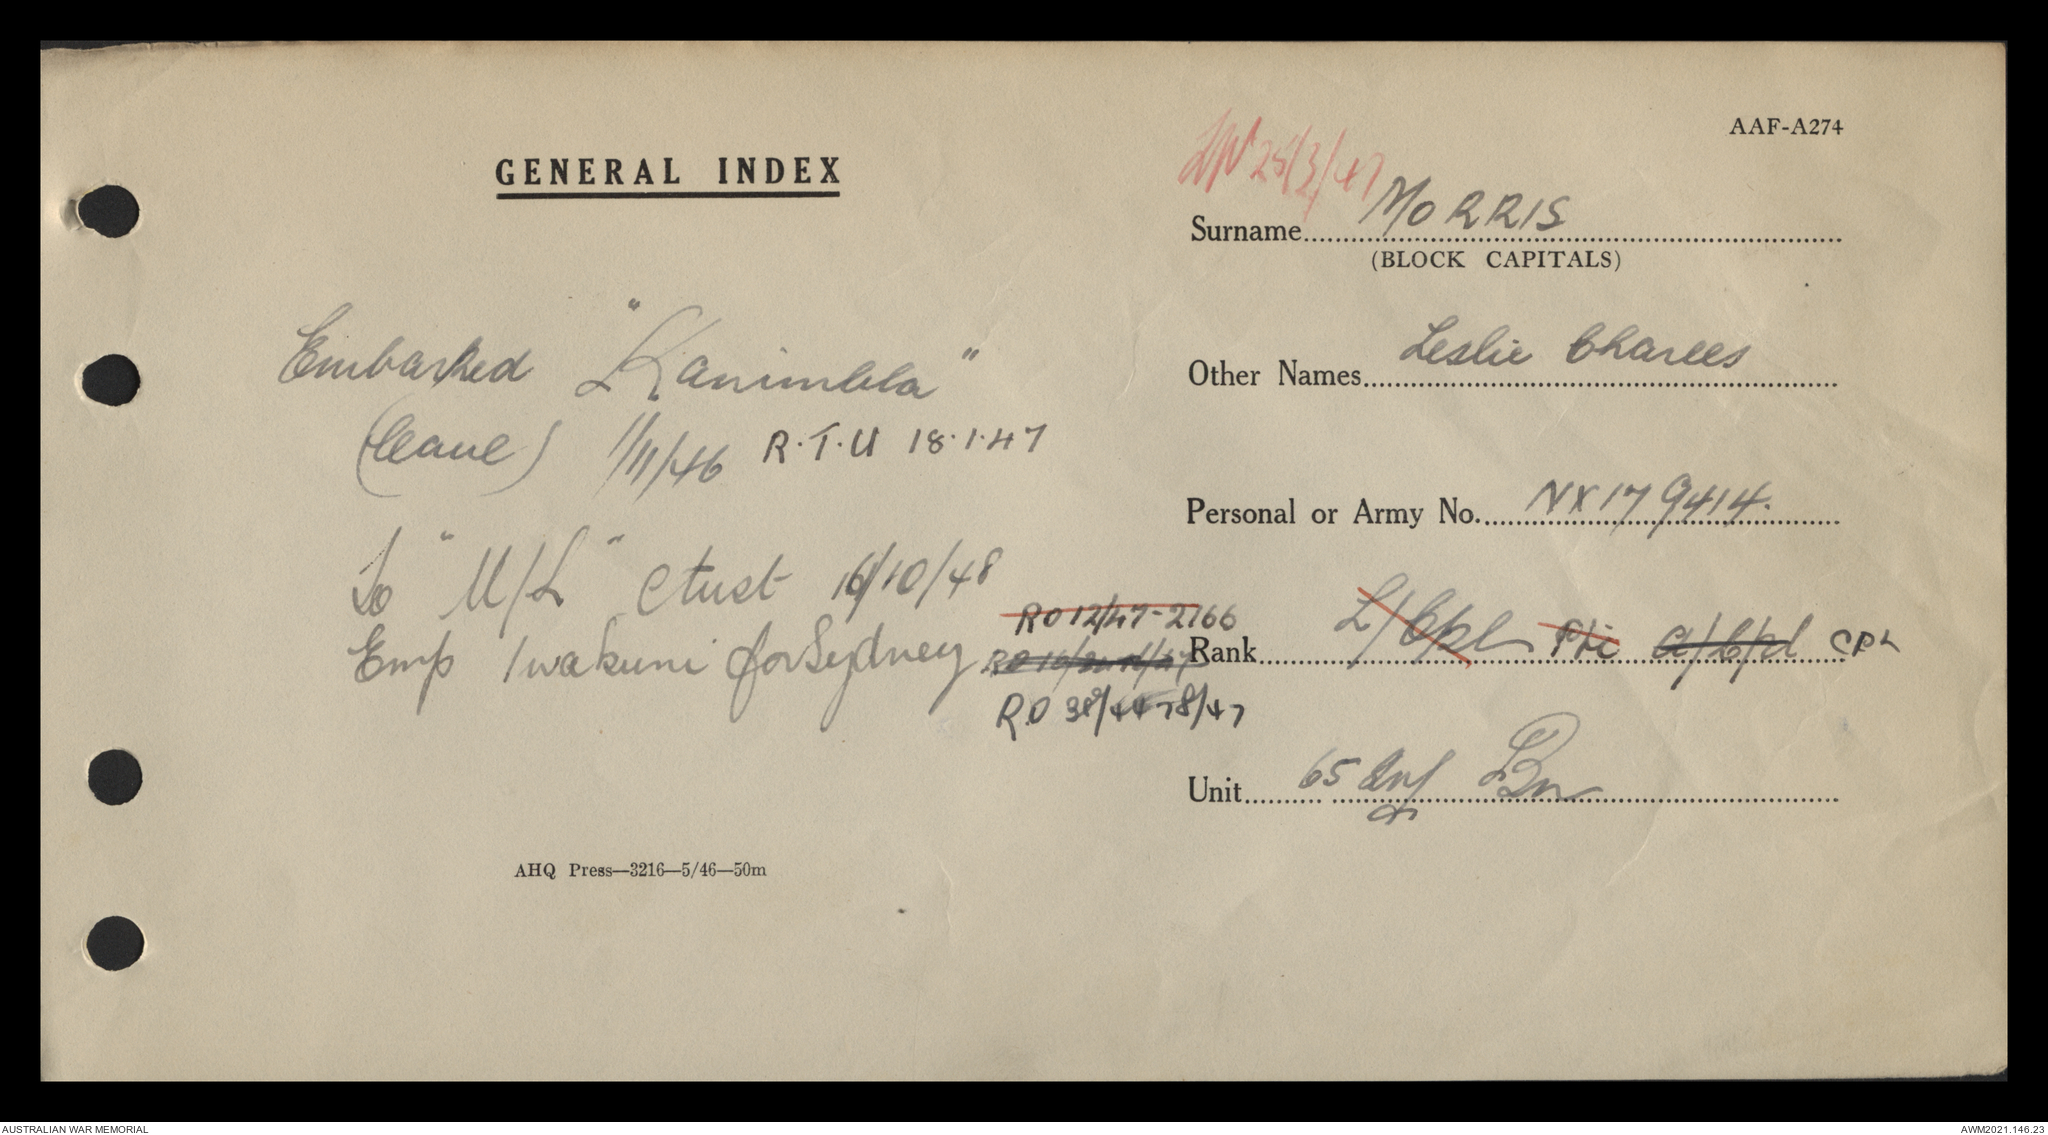 AAF-A274
GENERAL INDEX
25/3/47
Surname MORRIS
(BLOCK CAPITALS)
Other Names Leslie Charles
Personal or Army No. NX179414.
Rank L/Cpl Pte A/Cpl CPL
Unit 65 Inf Bn
Embarked "Kanimbla"
(leave) 1/11/46 R.T.U 18.1.47
To "M/L" Aust 16/10/48
Emp Iwakuni for Sydney
RO 12/47-2766
RO 38/4478/47
AHQ Press—3216—5/46—50m
AUSTRALIAN WAR MEMORIAL
AWM2021.146.23